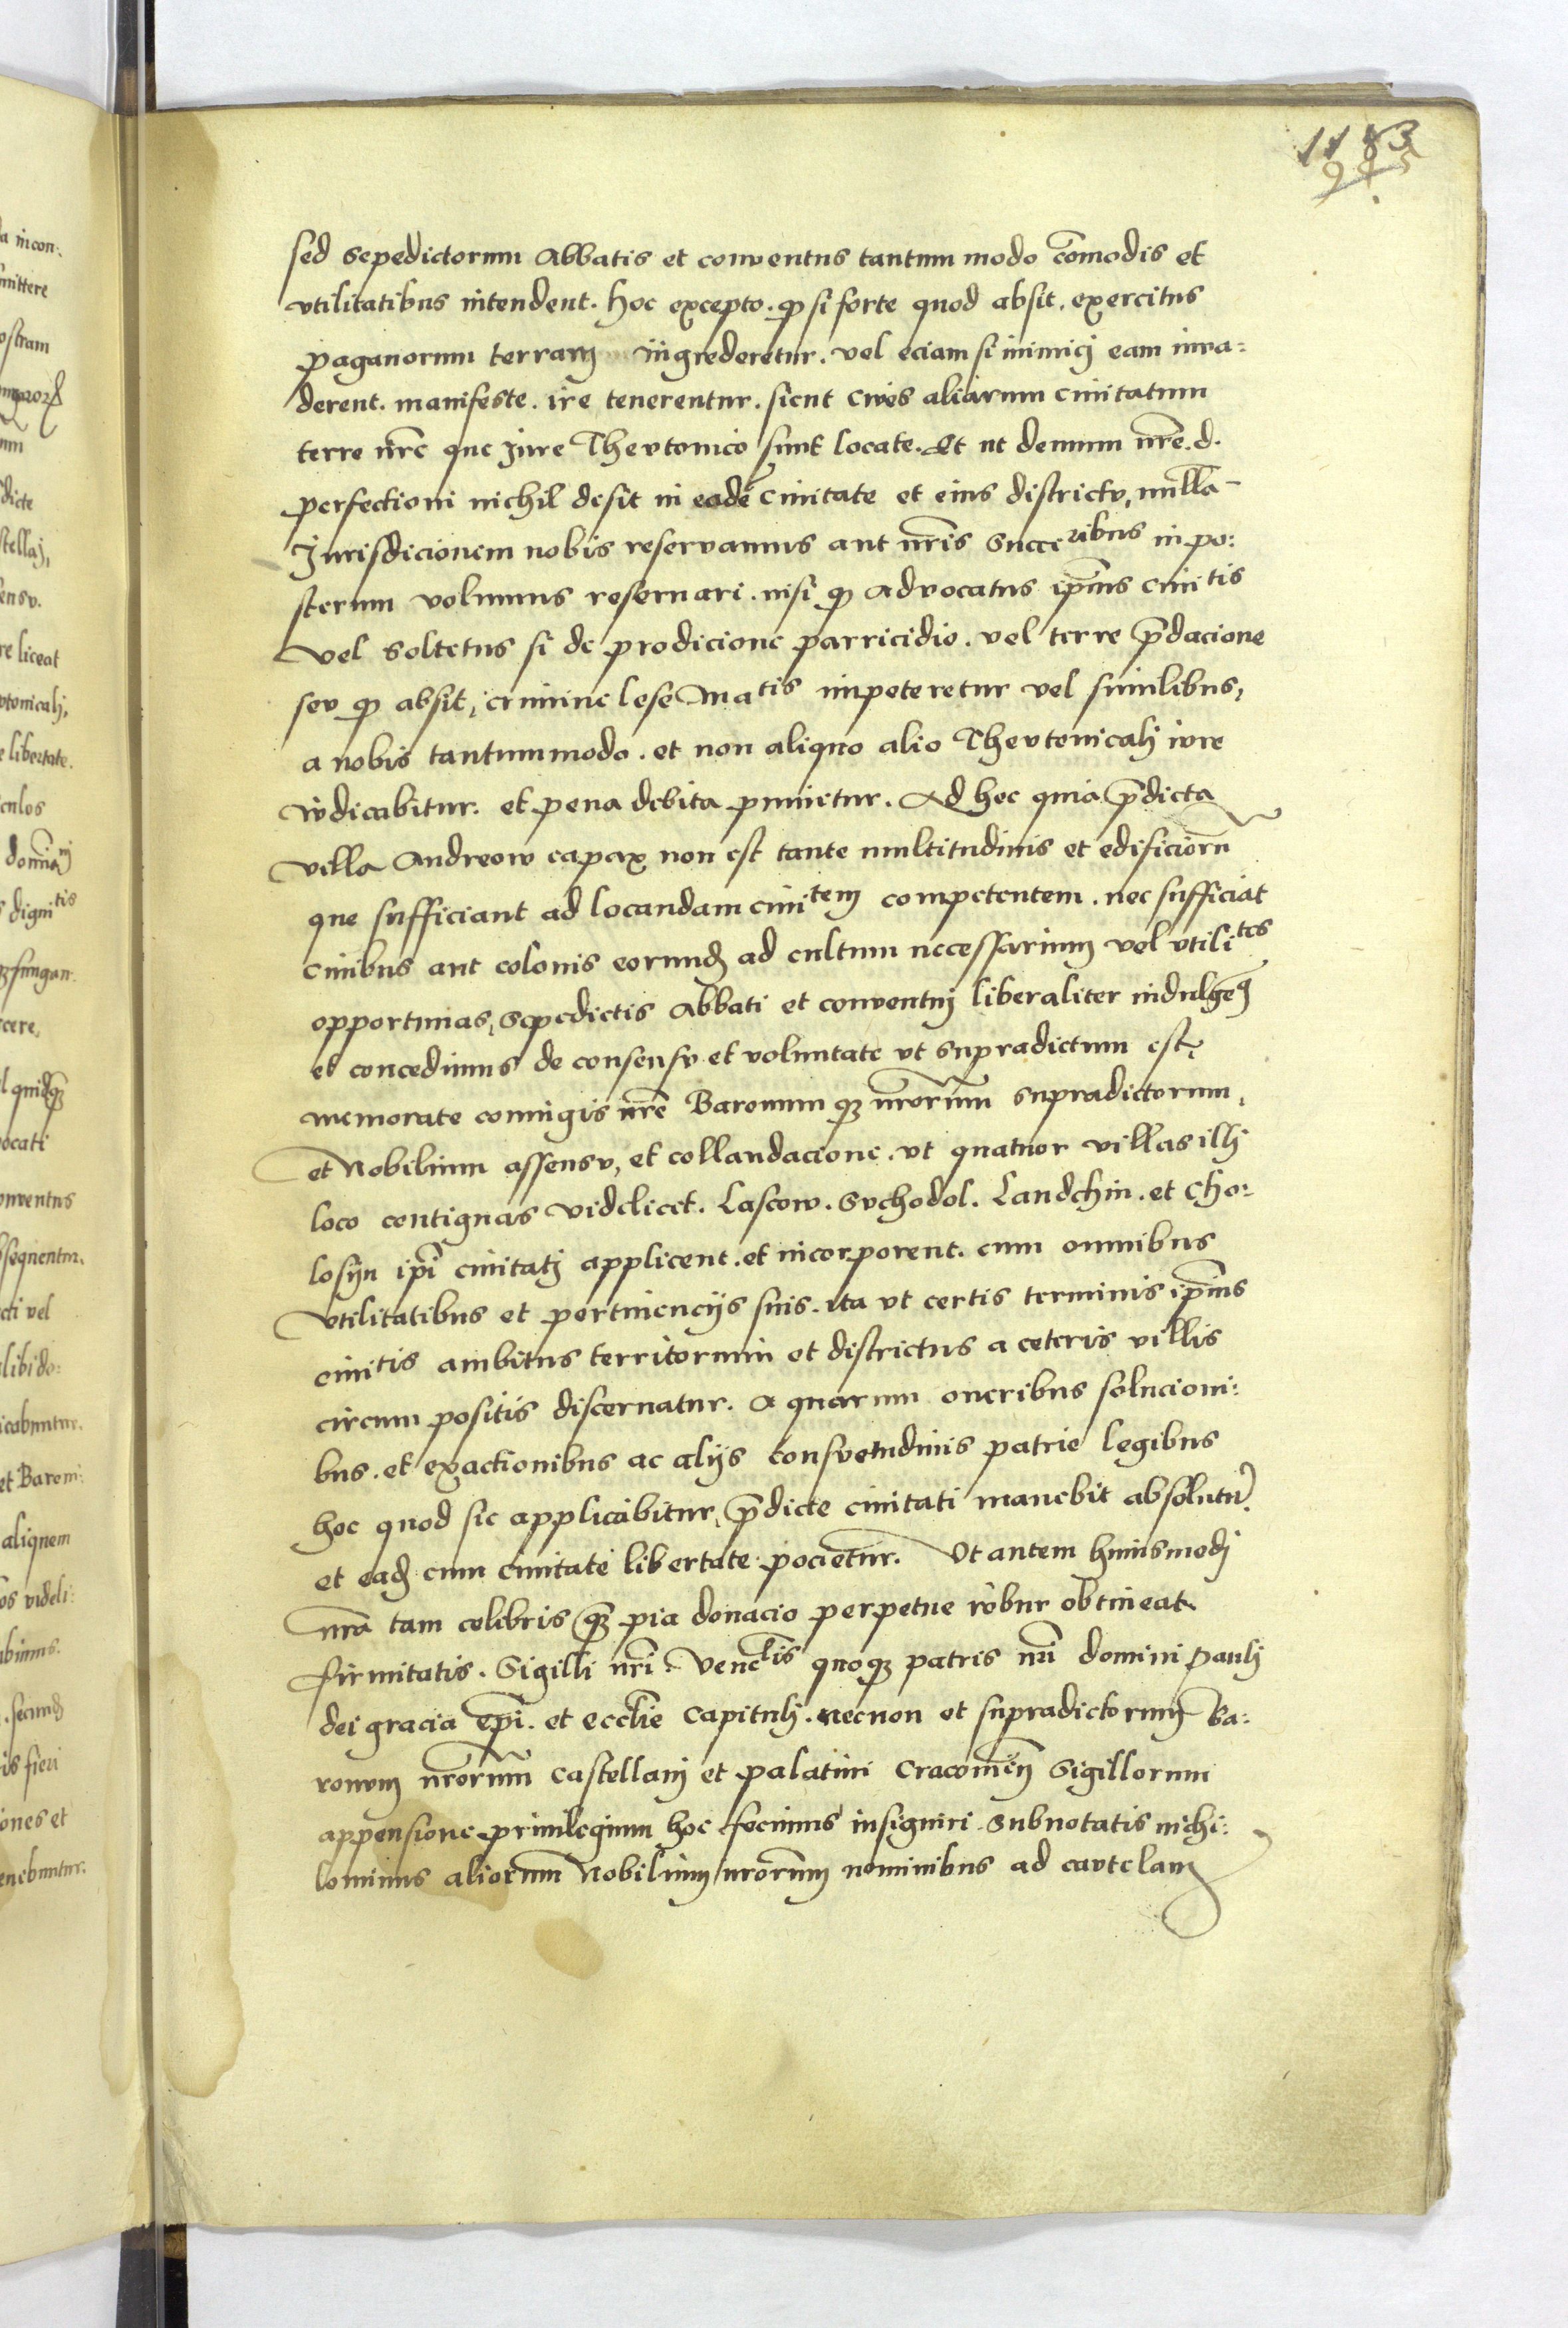 1183
995
sed sepedictorum Abbatis et conventus tantum modo cōmodis et
vtilitatibus intendent. hoc excepto. qd si forte quod absit. exercitus
paganorum terram ingrederetur. vel eciam si inimicj eam inva:
derent. manifeste. ire tenerentur. sicut cives aliarum civitatum
terre nrē que Jure Thevtonico sunt locate. Et ut demum nrē. d.
perfectioni nichil desit in eadē civitate et eius districtv, nullā
Jurisdicionem nobis reservamus aut nrīs succeribus in po:
sterum volumus reservari. nisi qd advocatus ip̄ius civitis
vel soltetus si de prodicione parricidio. vel terre p̄dacione
sev qd absit, crimine lese Matis impeteretur vel similibus,
a nobis tantummodo. et non aliquo alio Thevtonicalj ivre
ivdicabitur. et pena debita punietur. Ad hec quia p̄dicta
villa Andreow capax non est tante multitudinis et edificiorū
que sufficiant ad locandam civitem competentem. nec sufficiat
civibus aut colonis eorund ad cultum necessarium vel vtilites
opportunas, sepedictis Abbati et conventuj liberaliter indulgem9
et concedimus de consensv et voluntate vt supradictum est,
memorate coniugis nrē Baronum qz nrōrum supradictorum,
et Nobilium assensv, et collaudacione. vt quatuor villas illj
loco contiguas videlicet. Lascow. Svchodol. Landchin. et Cho:
losyn ip̄i civitatj applicent. et incorporent. cum omnibus
vtilitatibus et pertinencijs suis. ita vt certis terminis ip̄ius
civitis ambitus territorium et districtus a ceteris villis
circum positis discernatur. A quarum oneribus solucioni:
bus. et exactionibus ac alijs consvetudinis patrie legibus
hoc quod sic applicabitur, p̄dicte civitati manebit absolutū.
et ead cum civitate libertate pocietur. Vt autem huiusmodj
nrā tam celebris qz pia donacio perpetue robur obtineat
firmitatis. Sigilli nrī. Venelis quoqz patris nrī domini Paulj
dei gracia ep̄i. et eccl̄ie Capitulj. necnon et supradictorum Ba:
ronvm nrōrum Castellanj et palatini Cracovien̄ Sigillorum
appensione privilegium hoc fecimus insigniri. Subnotatis nichi:
lominus aliorum Nobilium nrōrum nominibus ad cavtelam